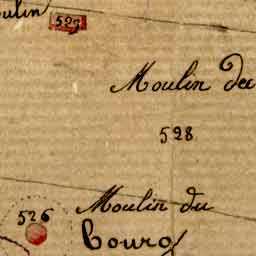 oulin
529
Moulin de
528
526 Moulin du
bourg